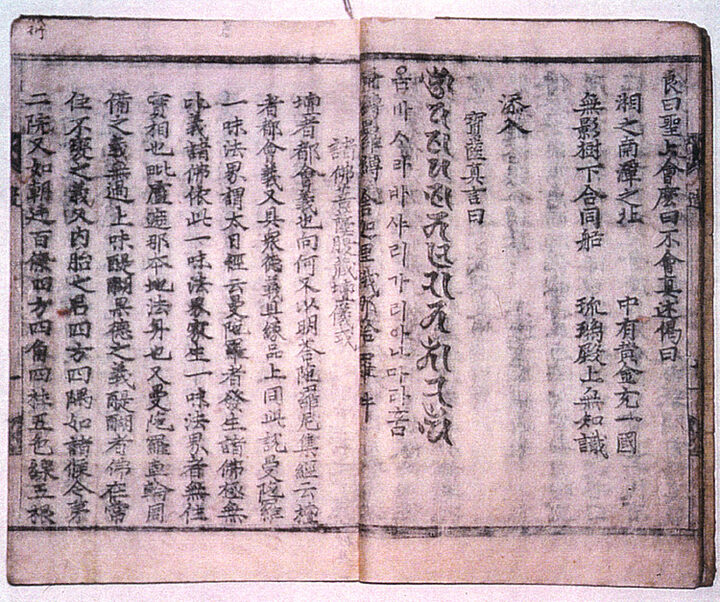 良曰聖上會麽曰不會真述偈曰
湘之南潭之北 中有黃金充一國
無影樹下合同船 琉璃殿上無知識
添入
寶薩真言曰
옴바라바샤리가리아나마라훔
諸佛菩薩腹藏壇儀式
壇者都會義也向何又以明答陁羅尼集經云壇
者都會義又具衆德義具緣品上同此說曼陁羅
一味法界謂大日經云曼陁羅者發生諸佛極無
比義諸佛依此一味法界家生一味法界者無住
實相也毗盧遮那本地法身也又曼陁羅輪周
備之義無過上味醍醐果德之義醍醐者佛在常
住不變之義又內胎之君四方四隅如諸侯今第
二院又如朝廷百僚四方四角四柱五色線五根